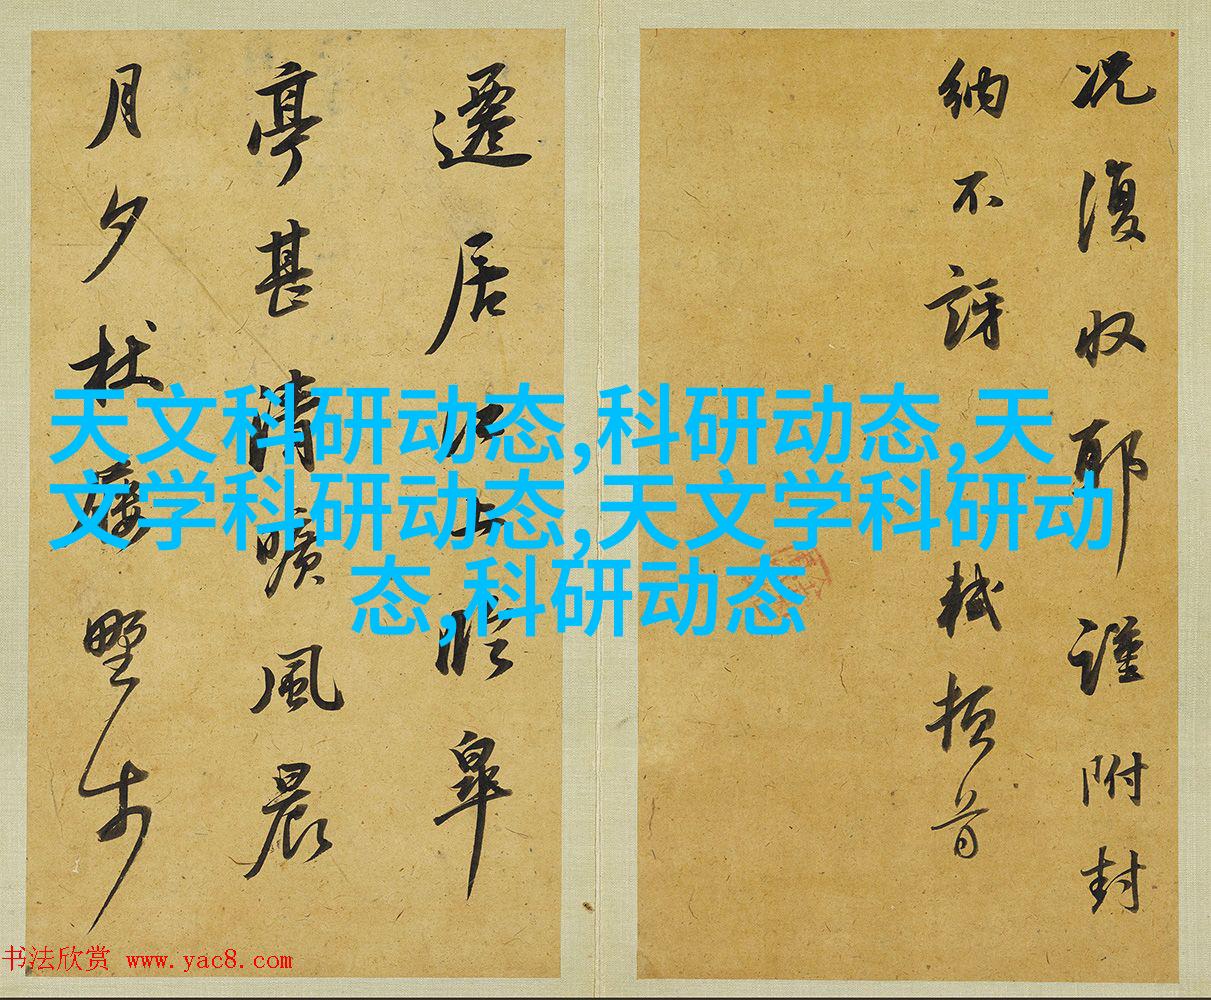 况復收耶謹附封
納不訝軾頓首
遷居江上臨皋
亭甚清曠風晨
月夕杖屨野步
天文科研动态,科研动态,天
文学科研动态,天文学科研动
态,科研动态
书法欣赏 www.yac8.com